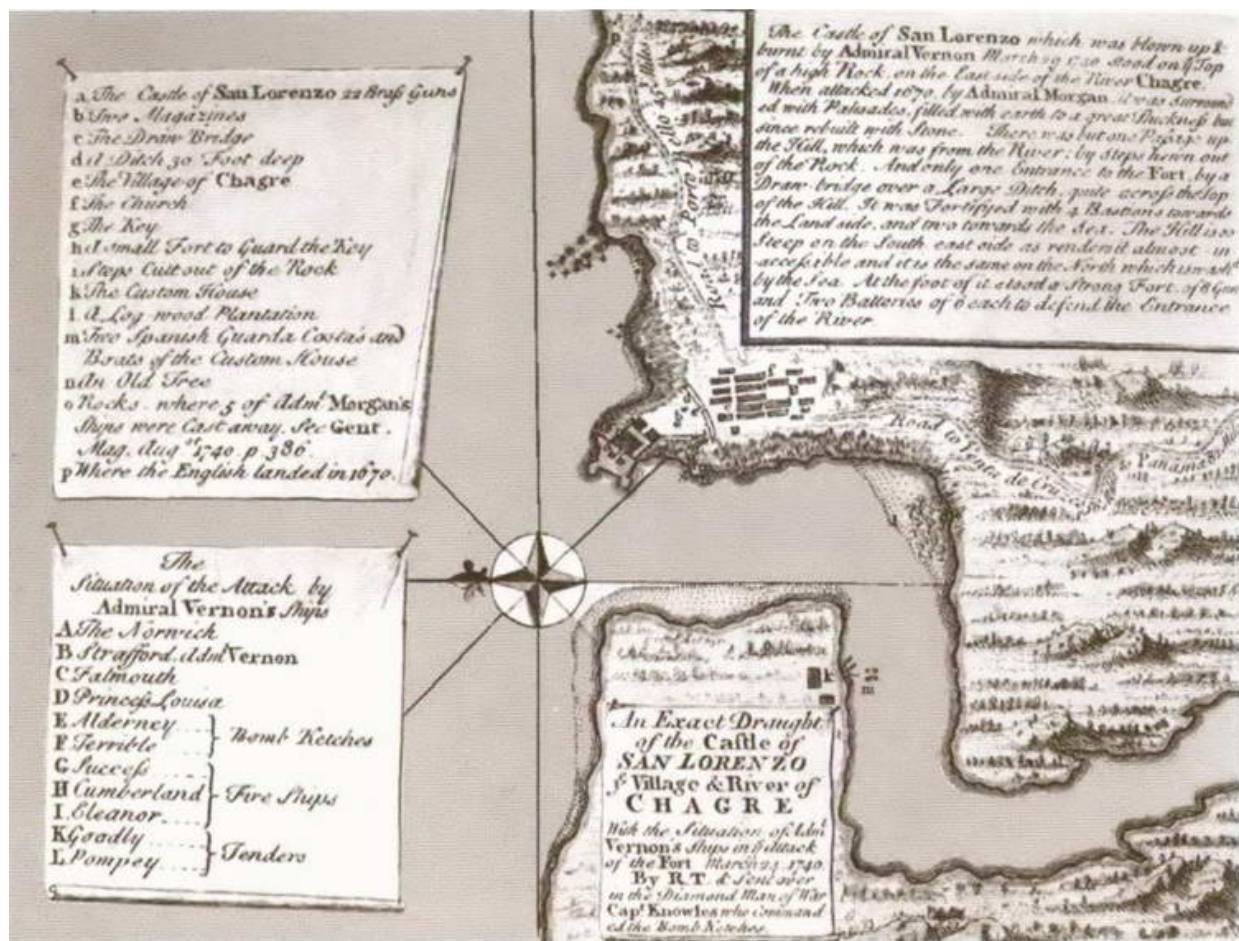 a The Castle of San Lorenzo 22 Braſs Guns
b Two Magazines
c The Draw Bridge
d A Ditch 30 Foot deep
e The Village of Chagre
f The Church
g The Key
h A small Fort to Guard the Key
i Steps Cutt out of the Rock
k The Custom House
l A Log wood Plantation
m Two Spanish Guarda Costa's and
Boats of the Custom House
n An Old Tree
o Rocks, where 5 of Adm.l Morgan's
Ships were Cast away. See Gent.
Mag. Aug.st 1740 p. 386.
p Where the English landed in 1670.
The
Situation of the Attack by
Admiral Vernon's Ships
A The Norwich
B Strafford, Adm.l Vernon
C Falmouth
D Princeſs Louisa
E Alderney
F Terrible
Bomb Ketches
G Succeſs
H Cumberland
I Eleanor
Fire Ships
K Goodly
L Pompey
Tenders
The Castle of San Lorenzo which was blown up &
burnt by Admiral Vernon March 29 1740 stood on ye Top
of a high Rock, on the East side of the River Chagre.
When attacked 1670, by Admiral Morgan, it was surround
ed with Palisades, filled with earth to a great Thickneſs but
since rebuilt with Stone. There was but one Paſsage up
the Hill, which was from the River; by steps hewn out
of the Rock. And only one Entrance to the Fort, by a
Draw-bridge over a Large Ditch, quite across the top
of the Hill. It was Fortifyed with 4 Bastions towards
the Land side, and two towards the Sea. The Hill is so
Steep on the South east side as render it almost in
acceſsible and it is the same on the North which is wash'd
by the Sea. At the foot of it stood a Strong Fort, of 8 Guns
and Two Batteries of 6 each to defend the Entrance
of the River.
p
Road to Porto Bello
Road to Venta de Cruces
to Panama
k
m
An Exact Draught
of the Caſtle of
SAN LORENZO
ye Village & River of
CHAGRE
With the Situation of Adm.l
Vernon's Ships in ye Attack
of the Fort March 24 1740
By R.T.
in the Diamond Man of War
Cap.t Knowles who command
ed the Bomb Ketches.